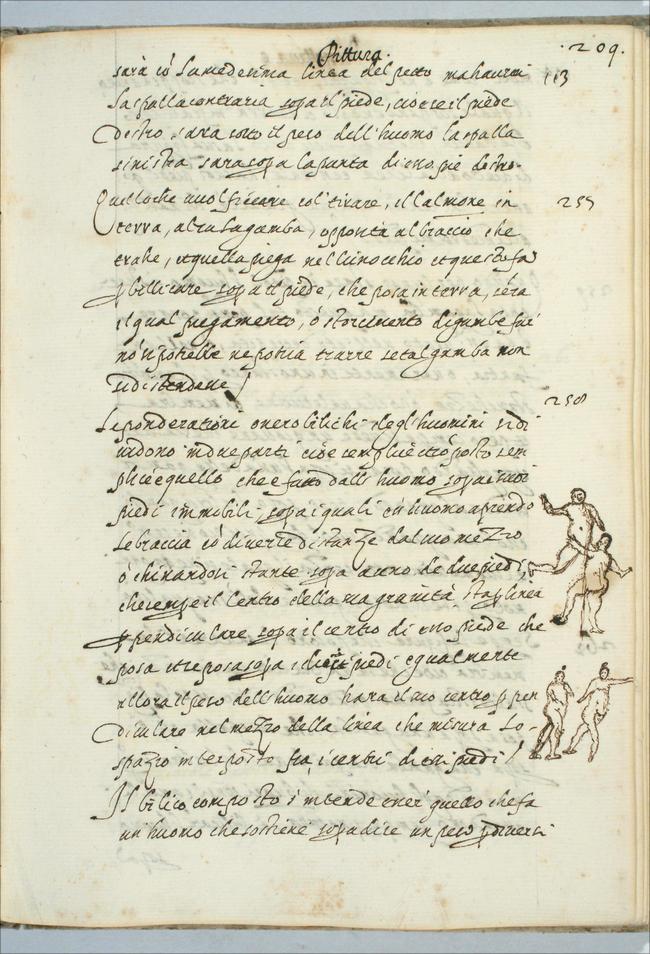 Pittura.
.209.
sarà cō la medesima linea del petto ma haurai
113
la spalla contraria sopa il piede, cioè se il piede
destro, sara sotto il peso dell'huomo la spalla
sinistra sara sopa la punta di esso piè destro.
Quello che uuol ficcare col' tirare, il calmone in
255
terra, alza la gamba, opposita al braccio che
trahe, et quella piega nel Ginocchio et questo fa
p bilicare sopa il piede, che posa in terra, sēza
il qual piegamento, ò storcimento di gambe
nō si potrebbe ne potria trarre se tal gamba non
si distendesse /
258
Le ponderationi onero bilichi degli huomini si di
uidono in due parti cioè semplice et cōposto sem
plice è quello che è fatto dall'huomo sopa i suoi
piedi immobili sopa i quali esso huomo aprendo
le braccia cō diuerse distanze dal suo mezzo
ò chinandosi stante sopa a uno de due piedi,
che sempre il Centro della sua grauità sta p linea
ppendiculare sopa il centro di esso piede che
posa et se posa sopa i piedi egualmente
allora il peso dell'huomo hara il suo centro ppen
diculare nel mezzo della linea che misura lo -
spazio interposto fra i centri di essi piedi /
Il bilico composto s'intende esser quello che fa
un'huomo che sostiene sopa di se un peso p diuersi